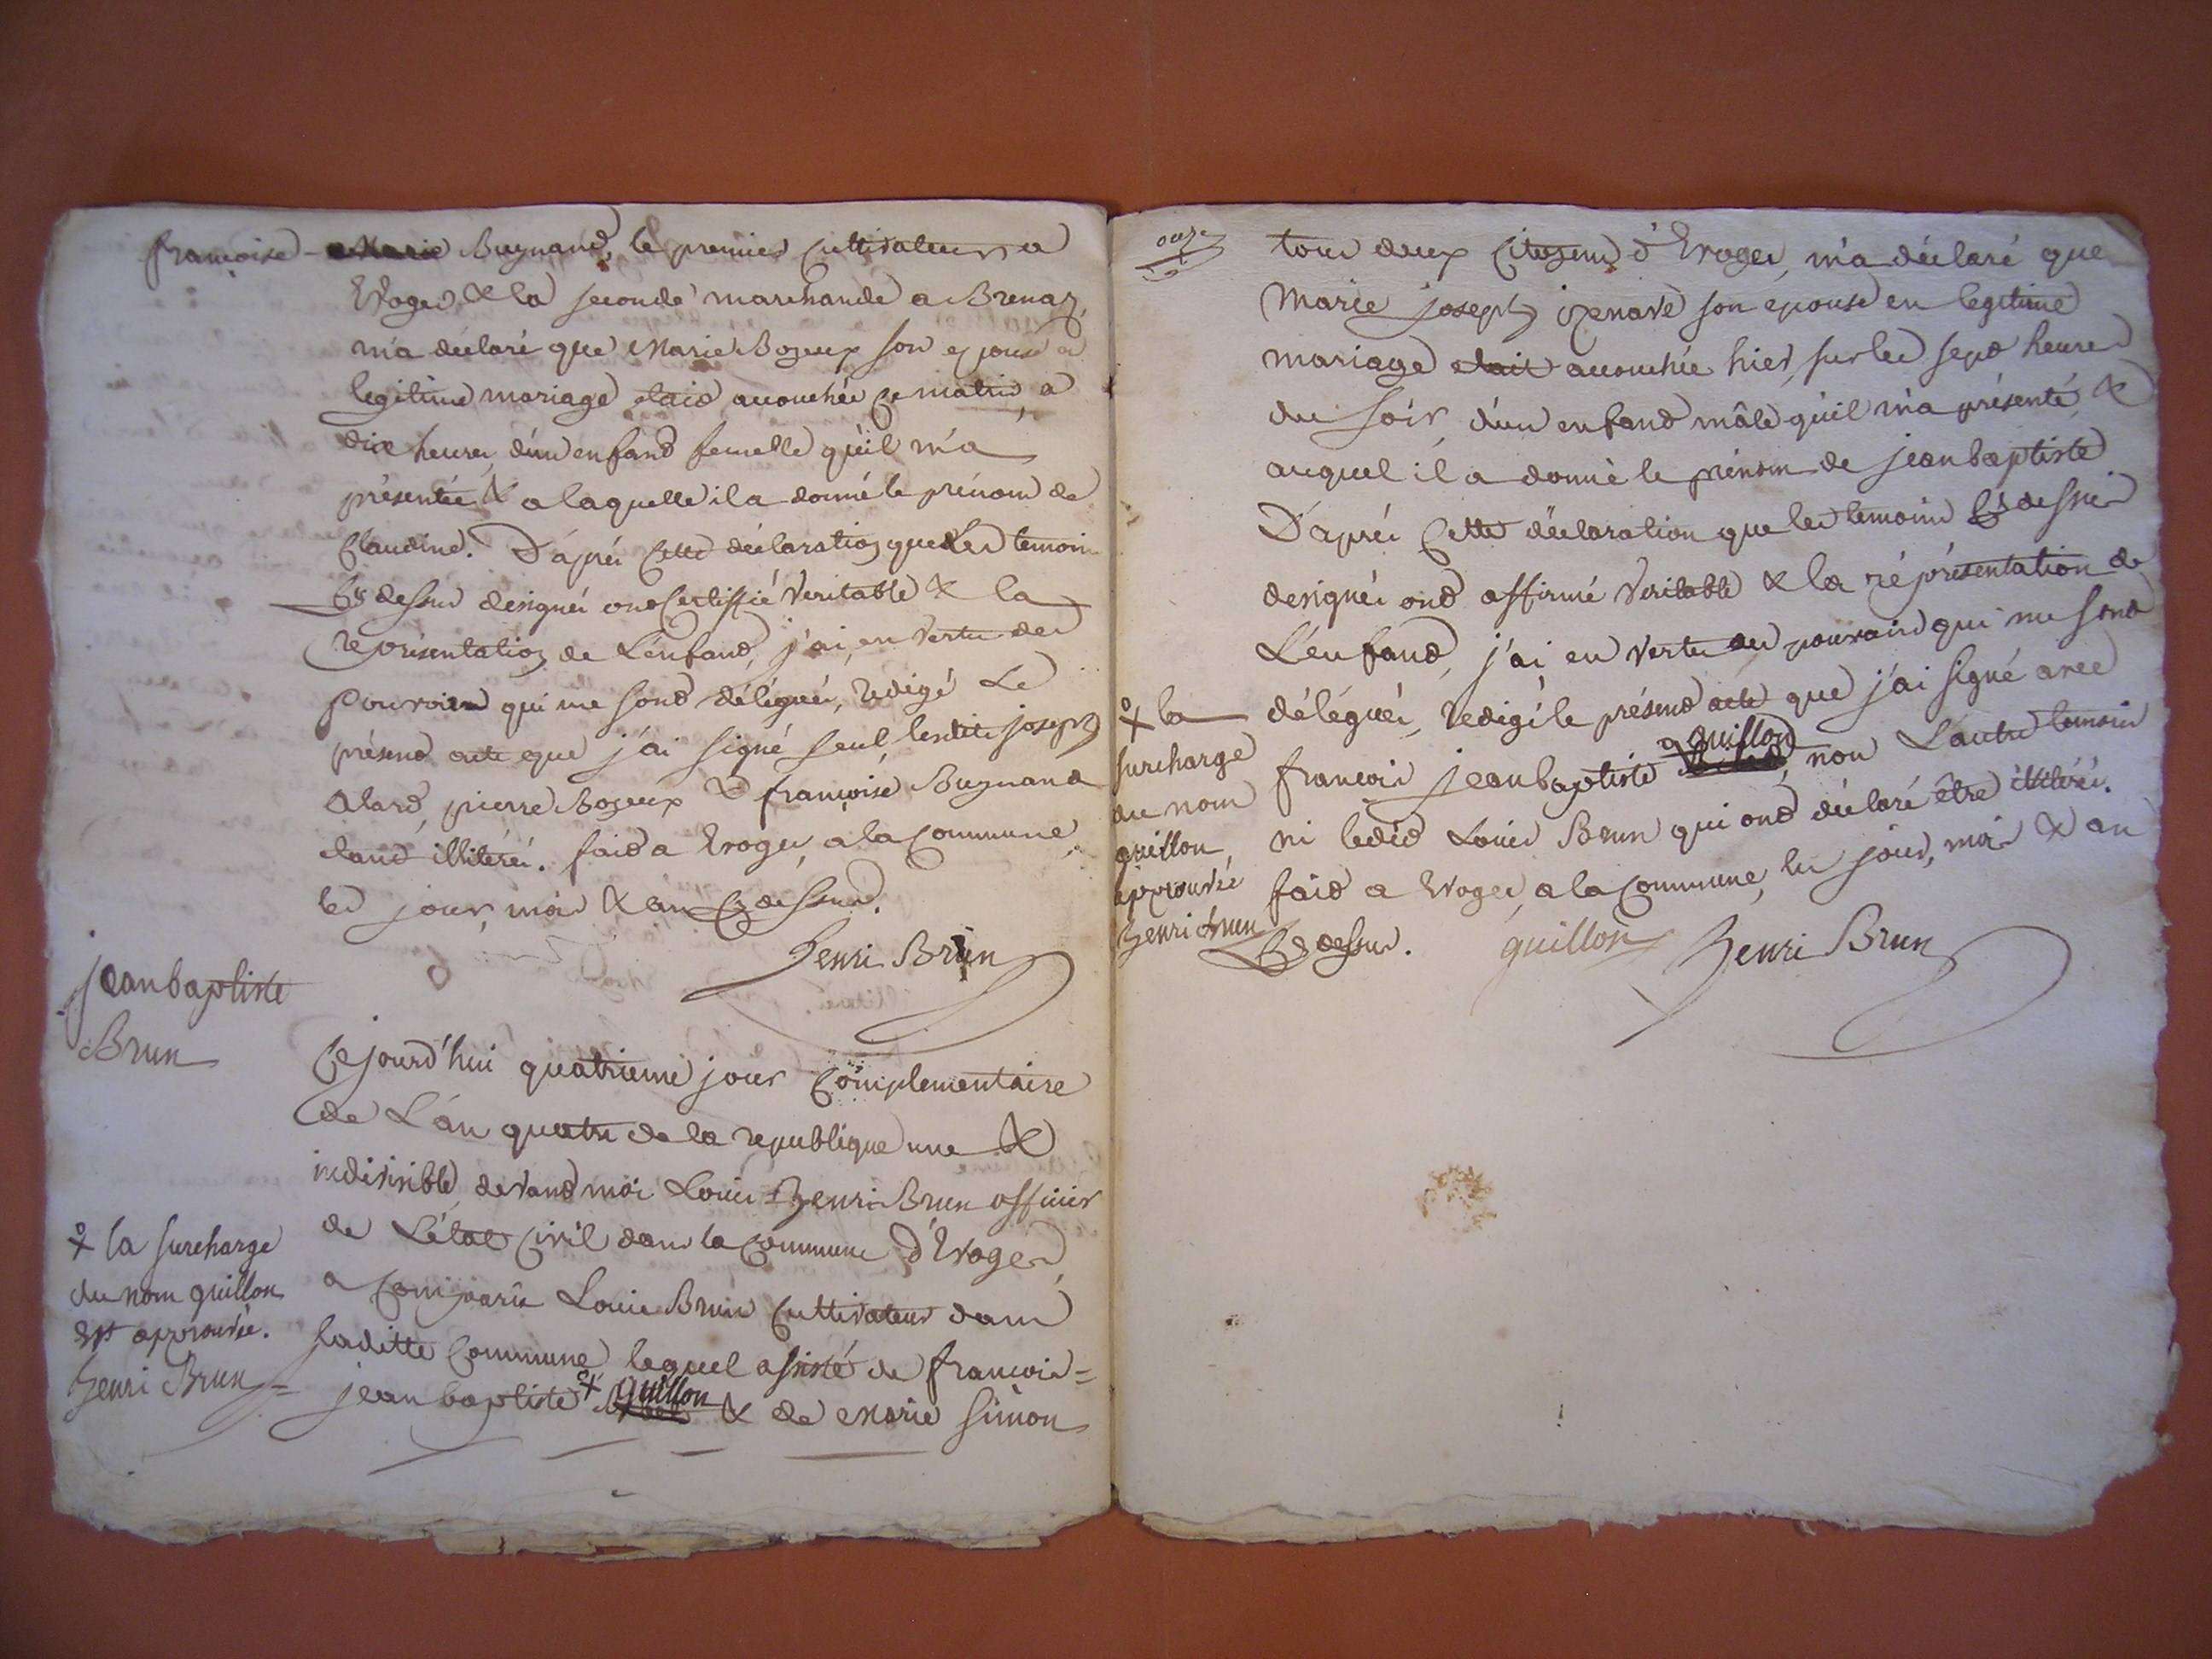 françoise - Marie Bugnand, le premier cultivateur a
Evoges & la seconde marchande a Brenaz,
m'a déclaré que Marie Bozeux son epouse
legitime mariage etait accouchée ce matin, a
dix heures, d'un enfand femelle qu'il m'a
présentée & a laquelle il a donné le prénom de
Claudine. D'après cette déclaration que les temoins
Cy dessus designés ont certiffié veritable & la
représentation de L'enfand, j'ai, en vertu des
pouvoirs qui me sond délégués, redigé Le
présend acte que j'ai signé seul, lesdits joseph
Alard, pierre Bozeux & françoise Bugnand
etand illiterés. faid a Evoges, à la commune,
les jour, mois & an Cy dessus.
Henri Brun
jean baptiste
Brun
Cejourd'hui quatrieme jour complementaire
de L'an quatre de la republique une &
indivisible, devand moi Louis Henri Brun officier
de L'état civil dans la commune d'Evoges,
a comparu Louis Brun cultivateur dans
laditte commune lequel assisté de françois=
jean baptiste guillon & de Marie Simon
+ la surcharge
du nom guillon
est approuvée.
Henri Brun
onze
tous deux citoyens d'Evoges, m'a déclaré que
Marie joseph son epouse en legitime
mariage etait accouchée hier, sur les sept heures
du soir, d'un enfand mâle qu'il m'a présenté &
auquel il a donné le prénom de jean baptiste
D'après cette déclaration que les temoins Cy dessus
designés ond affirmé veritable & la réprésentation de
L'enfand, j'ai en vertu des pouvoirs qui me sond
délégués, redigé le présend acte que j'ai signé avec
françois jean baptiste guillon, non L'autre temoin
ni ledid Louis Brun qui ond déclaré être illiterés.
faid a Evoges, a la commune, les jour, mois & an
Cy dessus. guillon Henri Brun
+ la
surcharge
du nom
guillon
approuvée
Henri Brun